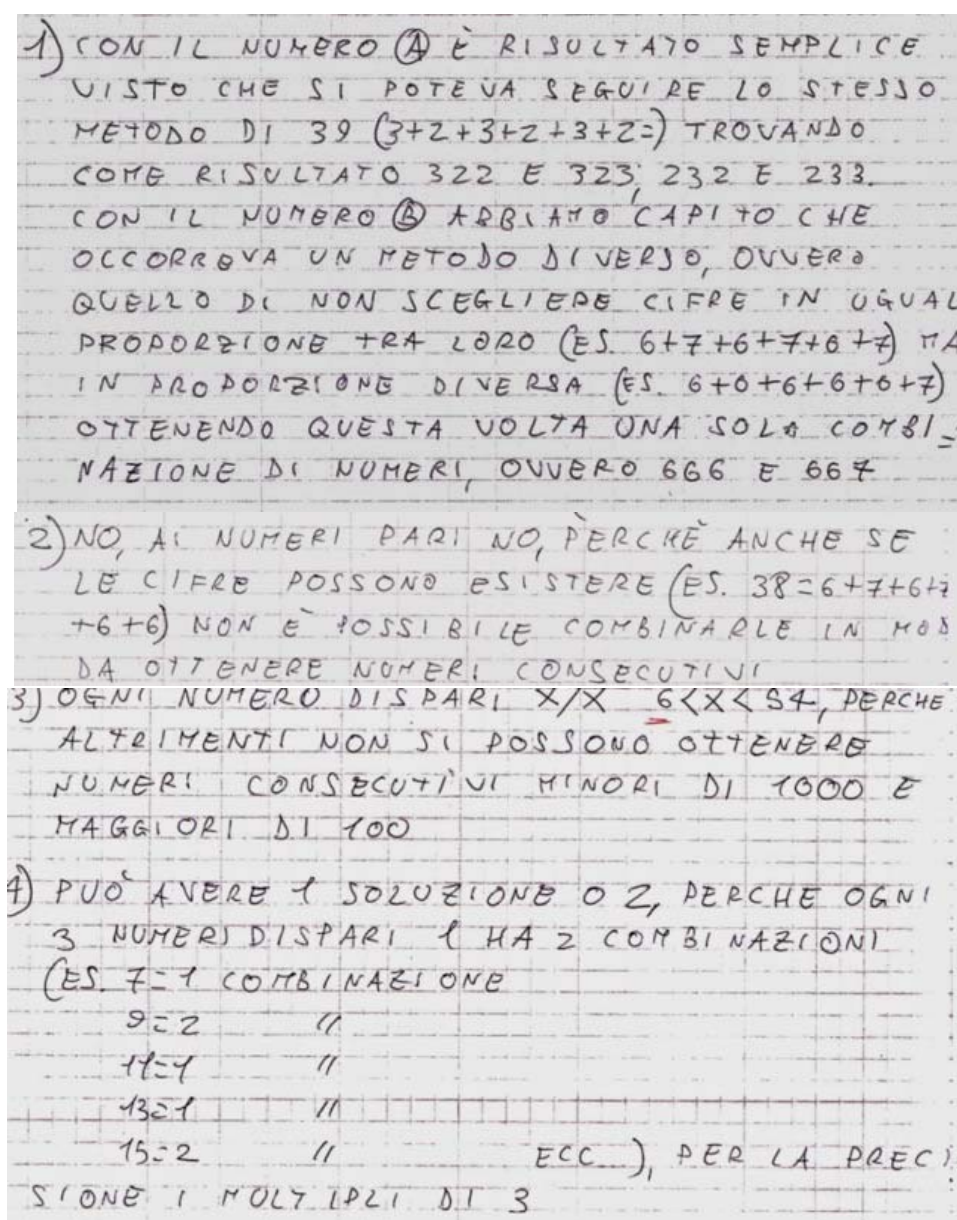 1) CON IL NUMERO Ⓐ È RISULTATO SEMPLICE
VISTO CHE SI POTEVA SEGUIRE LO STESSO
METODO DI 39 (3+2+3+2+3+2=) TROVANDO
COME RISULTATO 322 E 323; 232 E 233.
CON IL NUMERO Ⓑ ABBIAMO CAPITO CHE
OCCORREVA UN METODO DIVERSO, OVVERO
QUELLO DI NON SCEGLIERE CIFRE IN UGUAL
PROPORZIONE TRA LORO (ES. 6+7+6+7+6+7) MA
IN PROPORZIONE DIVERSA (ES. 6+6+6+6+6+7)
OTTENENDO QUESTA VOLTA UNA SOLA COMBI=
NAZIONE DI NUMERI, OVVERO 666 E 667
2) NO, AI NUMERI PARI NO, PERCHÈ ANCHE SE
LE CIFRE POSSONO ESISTERE (ES. 38=6+7+6+7
+6+6) NON È POSSIBILE COMBINARLE IN MOD
DA OTTENERE NUMERI CONSECUTIVI
3) OGNI NUMERO DISPARI X/X 6<X<54, PERCHE
ALTRIMENTI NON SI POSSONO OTTENERE
NUMERI CONSECUTIVI MINORI DI 1000 E
MAGGIORI DI 100
4) PUÒ AVERE 1 SOLUZIONE O 2, PERCHE OGNI
3 NUMERI DISPARI 1 HA 2 COMBINAZIONI
(ES. 7=1 COMBINAZIONE
9=2 "
11=1 "
13=1 "
15=2 " ECC...), PER LA PRECI
SIONE I MOLTIPLI DI 3